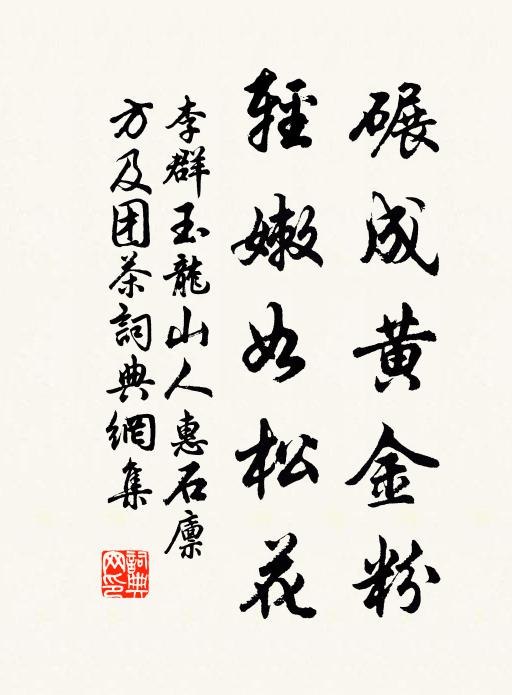 碾成黄金粉
輕嫩如松花
李群玉龍山人惠石廪
方及团茶詞典網集
詞典
网印